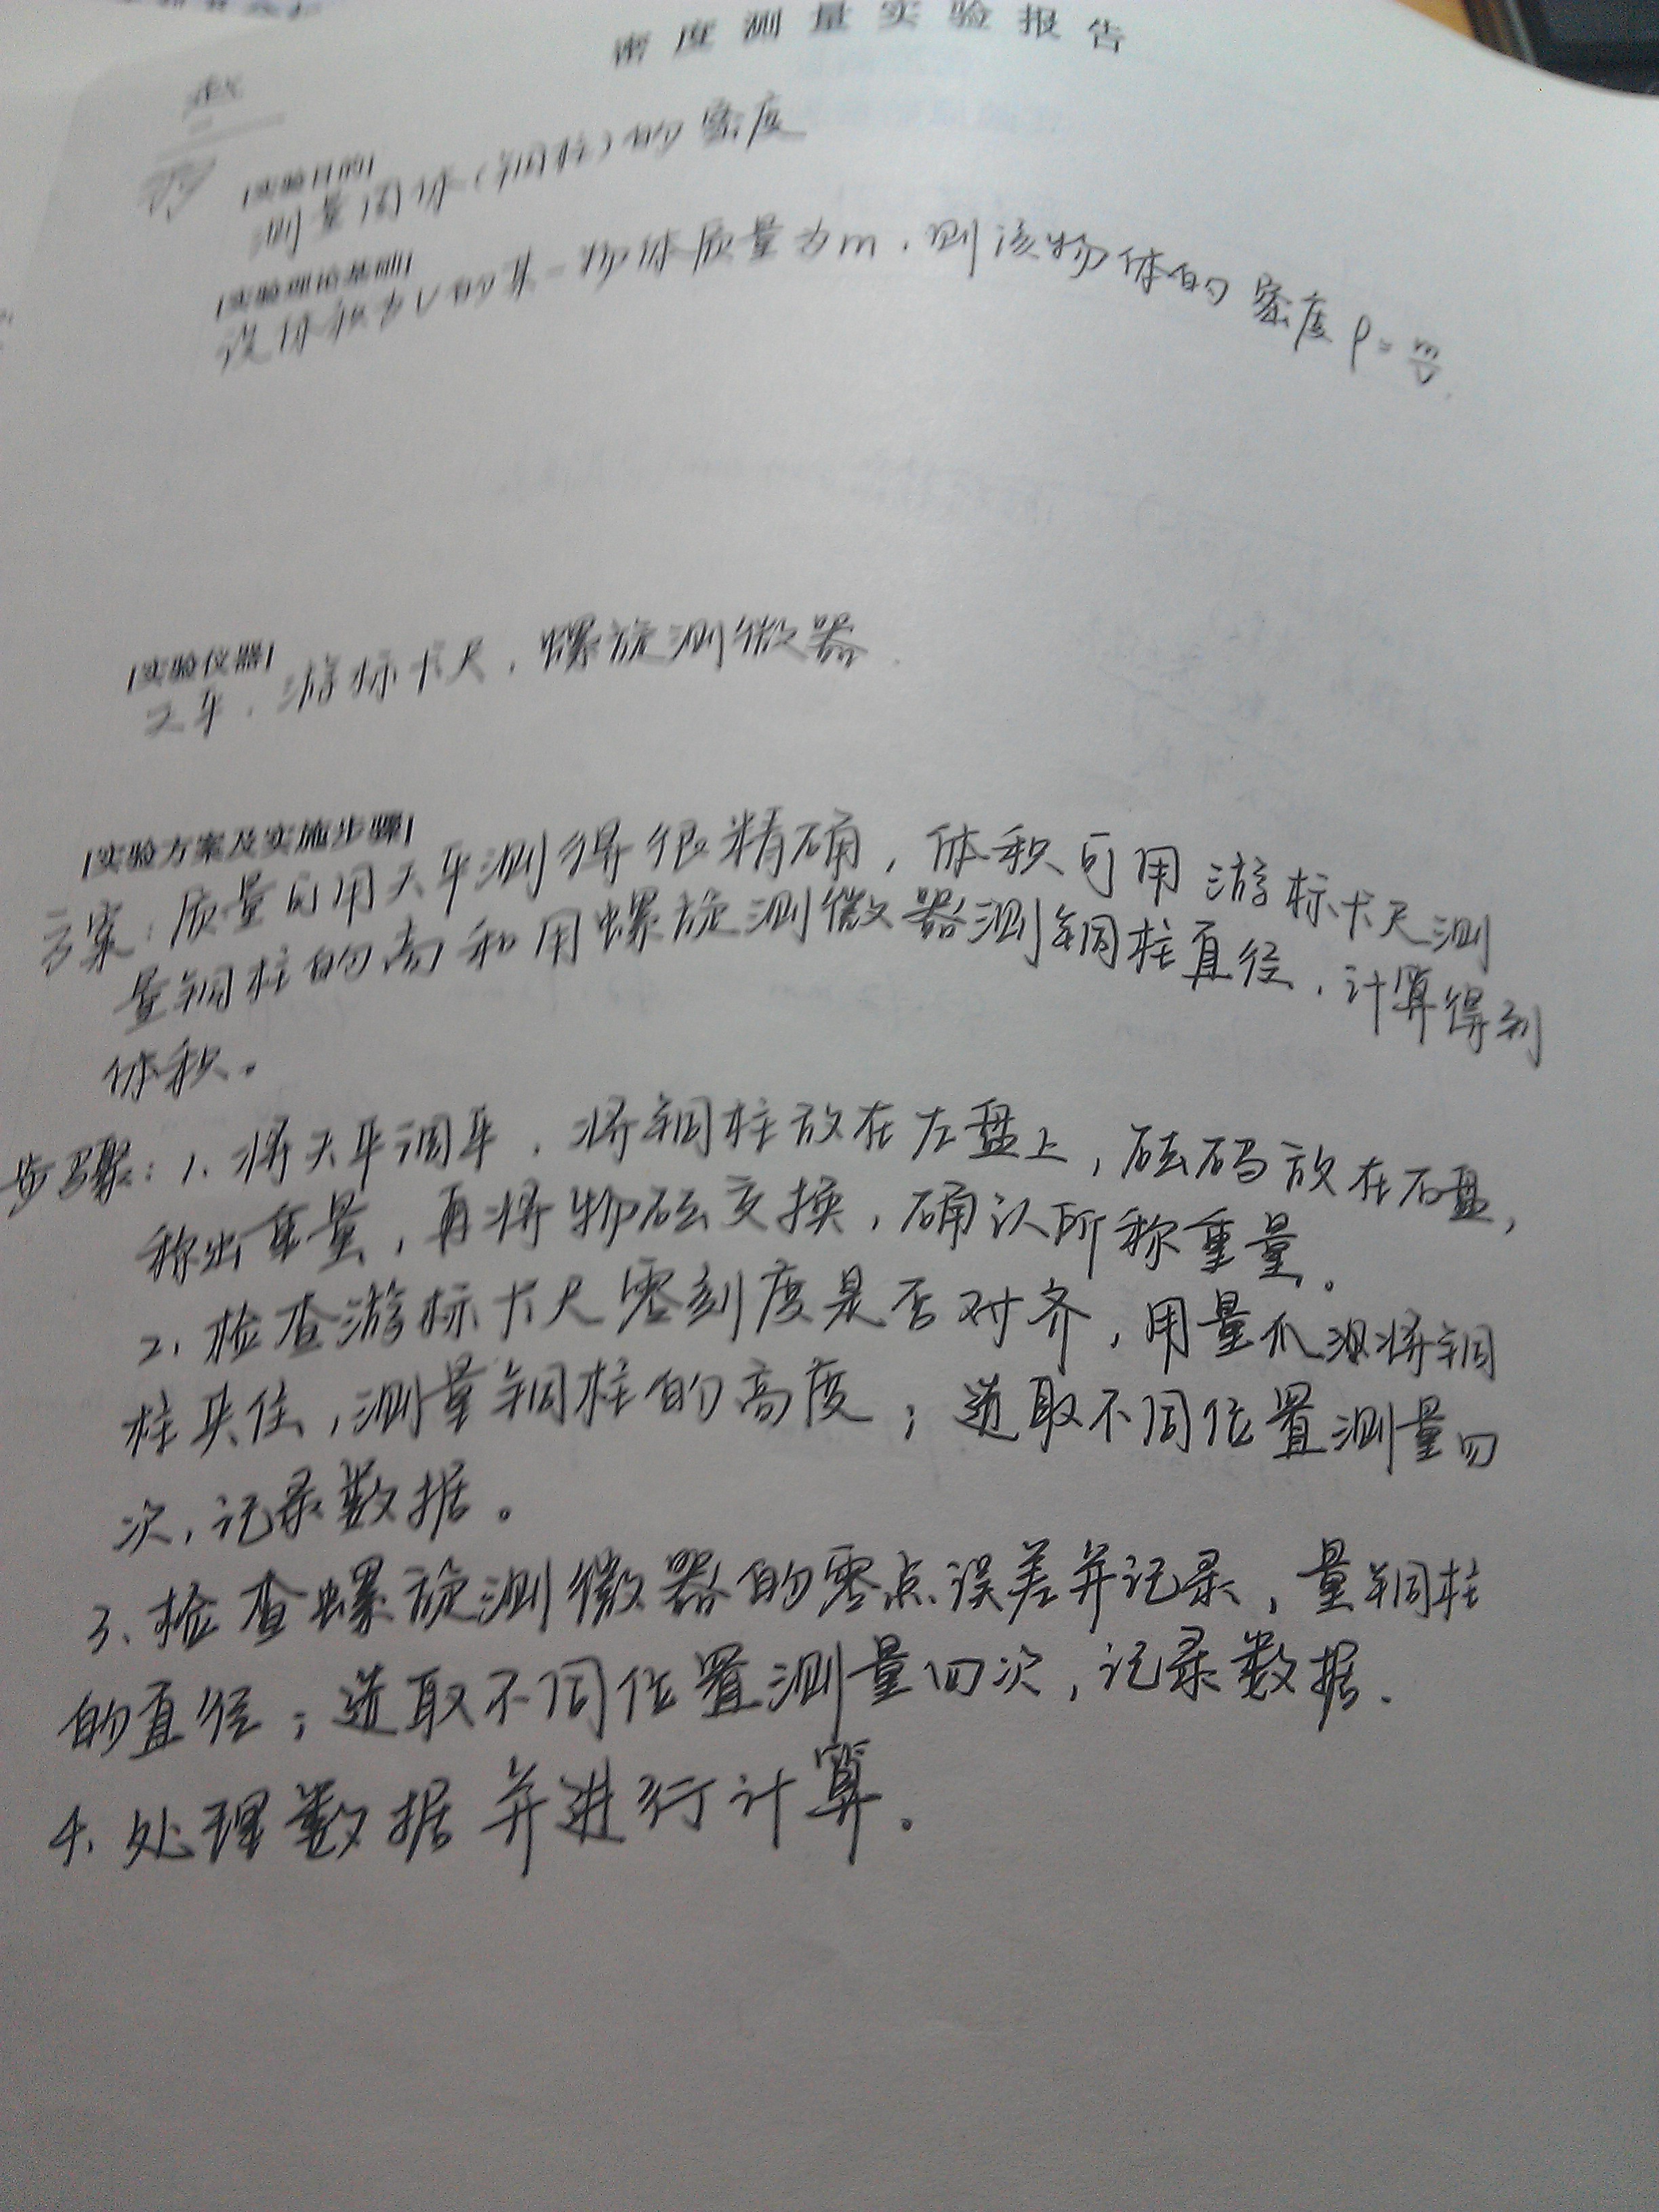 密度测量实验报告
[实验目的]
测量固体(铜柱)的密度
[实验理论基础]
设体积为V的某一物体质量为m,则该物体的密度ρ=m/V.
[实验仪器]
天平、游标卡尺、螺旋测微器.
[实验方案及实施步骤]
方案:质量可用天平测得很精确,体积可用游标卡尺测
量铜柱的高和用螺旋测微器测铜柱直径,计算得到
体积。
步骤:1、将天平调平,将铜柱放在左盘上,砝码放在右盘,
称出重量,再将物砝交换,确认所称重量。
2、检查游标卡尺零刻度是否对齐,用量爪将铜
柱夹住,测量铜柱的高度;选取不同位置测量四
次,记录数据。
3、检查螺旋测微器的零点误差并记录,量铜柱
的直径;选取不同位置测量四次,记录数据.
4、处理数据并进行计算。